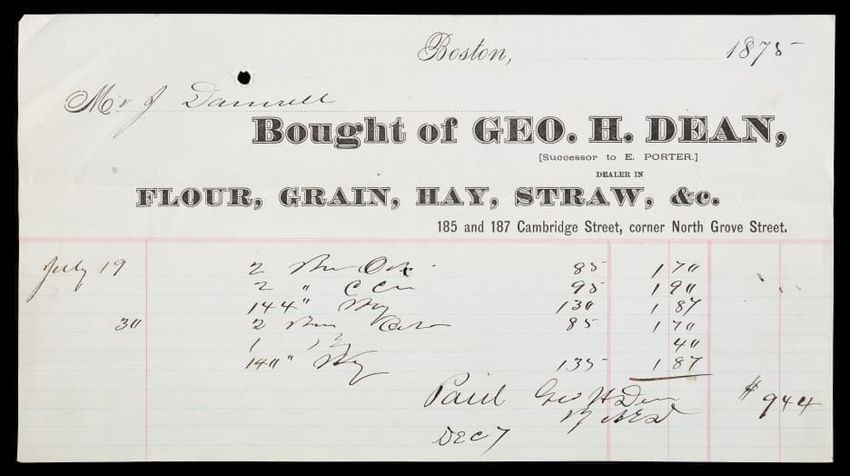 Boston, 1875
Mr J Damrell
Bought of GEO. H. DEAN,
[Successor to E. PORTER.]
DEALER IN
FLOUR, GRAIN, HAY, STRAW, &c.
185 and 187 Cambridge Street, corner North Grove Street.
July 19 2 85 1 70
2 " 95 1 90
144 " Hay 130 1 87
30 2 85 1 70
1 40
140 " Hay 135 1 87
Paid Geo H Dean $9.44
Dec 7